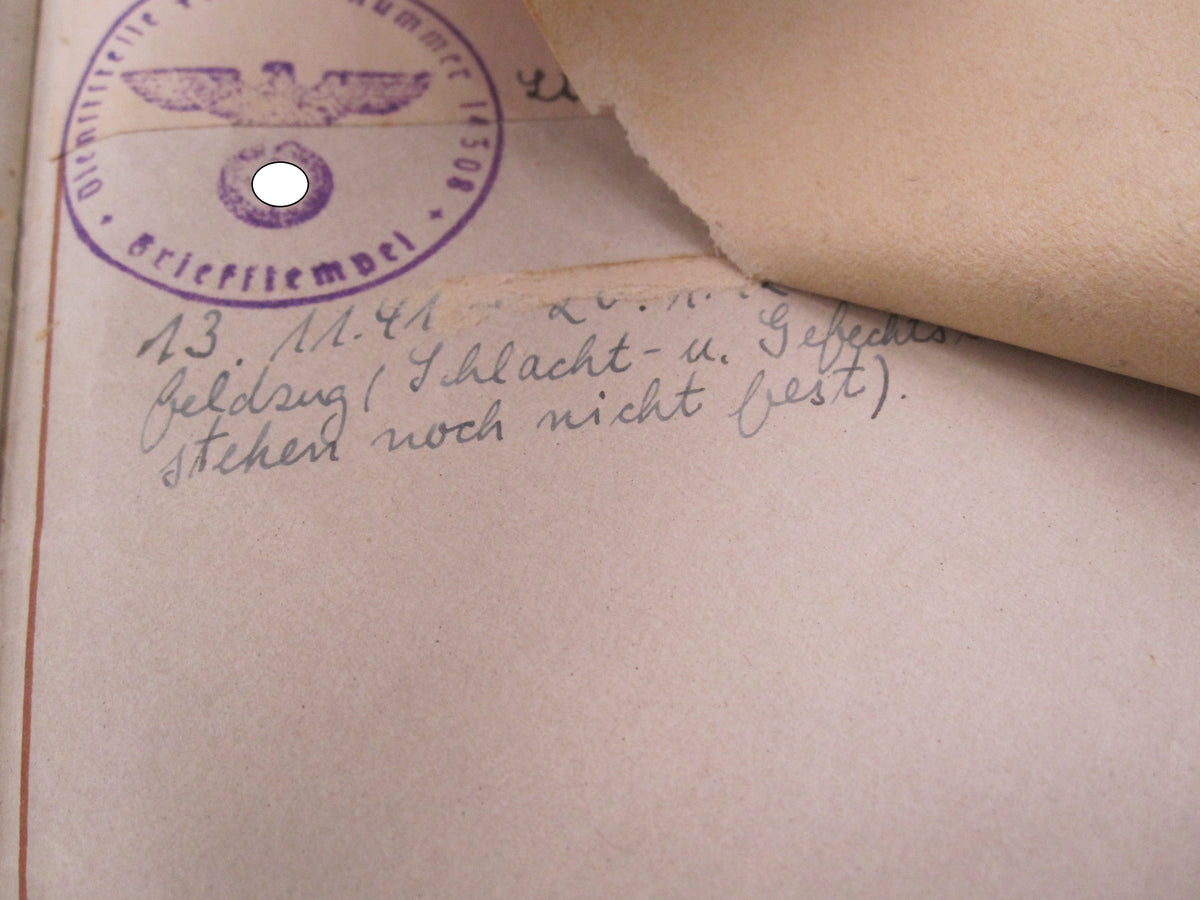 Dienststelle nummer 14308
Briefstempel
13. 11.41 - 20.
feldzug (Schlacht- u. Gefechts
stehen noch nicht fest).